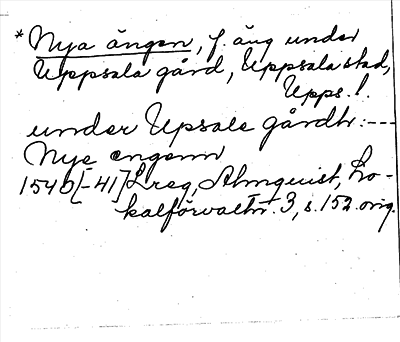 *Nya ängen, f. äng under
Uppsala gård, Uppsala stad,
Upps. l.
under Upsale gårdh: ---
Nye engenn
1540[-41] Lreg, Almquist, Lo-
kalförvaltn. 3, s. 152. orig.